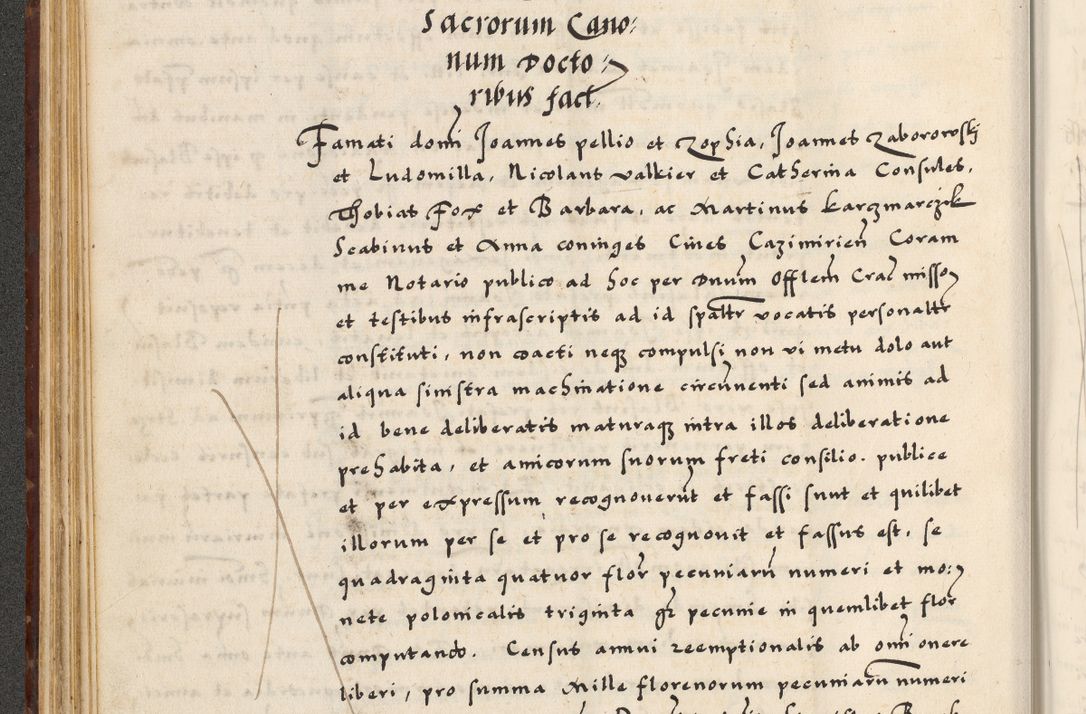 Sacrorum Cano:
num Docto:
ribus fact.
Famati domi Joannes pellio et Zophia, Joannes Zaborowskj
et Ludomilla, Nicolaus valkier et Catherina Consules,
Thobias Fox et Barbara, ac Martinus karczmarczik
Scabinus et Anna coniuges Ciues Cazimirien Coram
me Notario publico ad hoc per Dnum Offlem Crac misso
et testibus infrascriptis ad id spaltr vocatis personaltr
constituti, non coacti neqȝ compulsi non vi metu dolo aut
aliqua sinistra machinatione circunuenti sed animis ad
id bene deliberatis maturaqȝ intra illos deliberatione
prehabita, et amicorum suorum freti consilio. publice
et per expressum recognouerunt et fassi sunt et quilibet
illorum per se et pro se recognouit et fassus est, se
quadraginta quatuor flor pecuniaru numeri et mo:
nete polonicalis triginta gr pecunie in quemlibet flor
computando. Census annui reemptionalis ab omi onere
liberi, pro summa Mille florenorum pecuniaru numeri